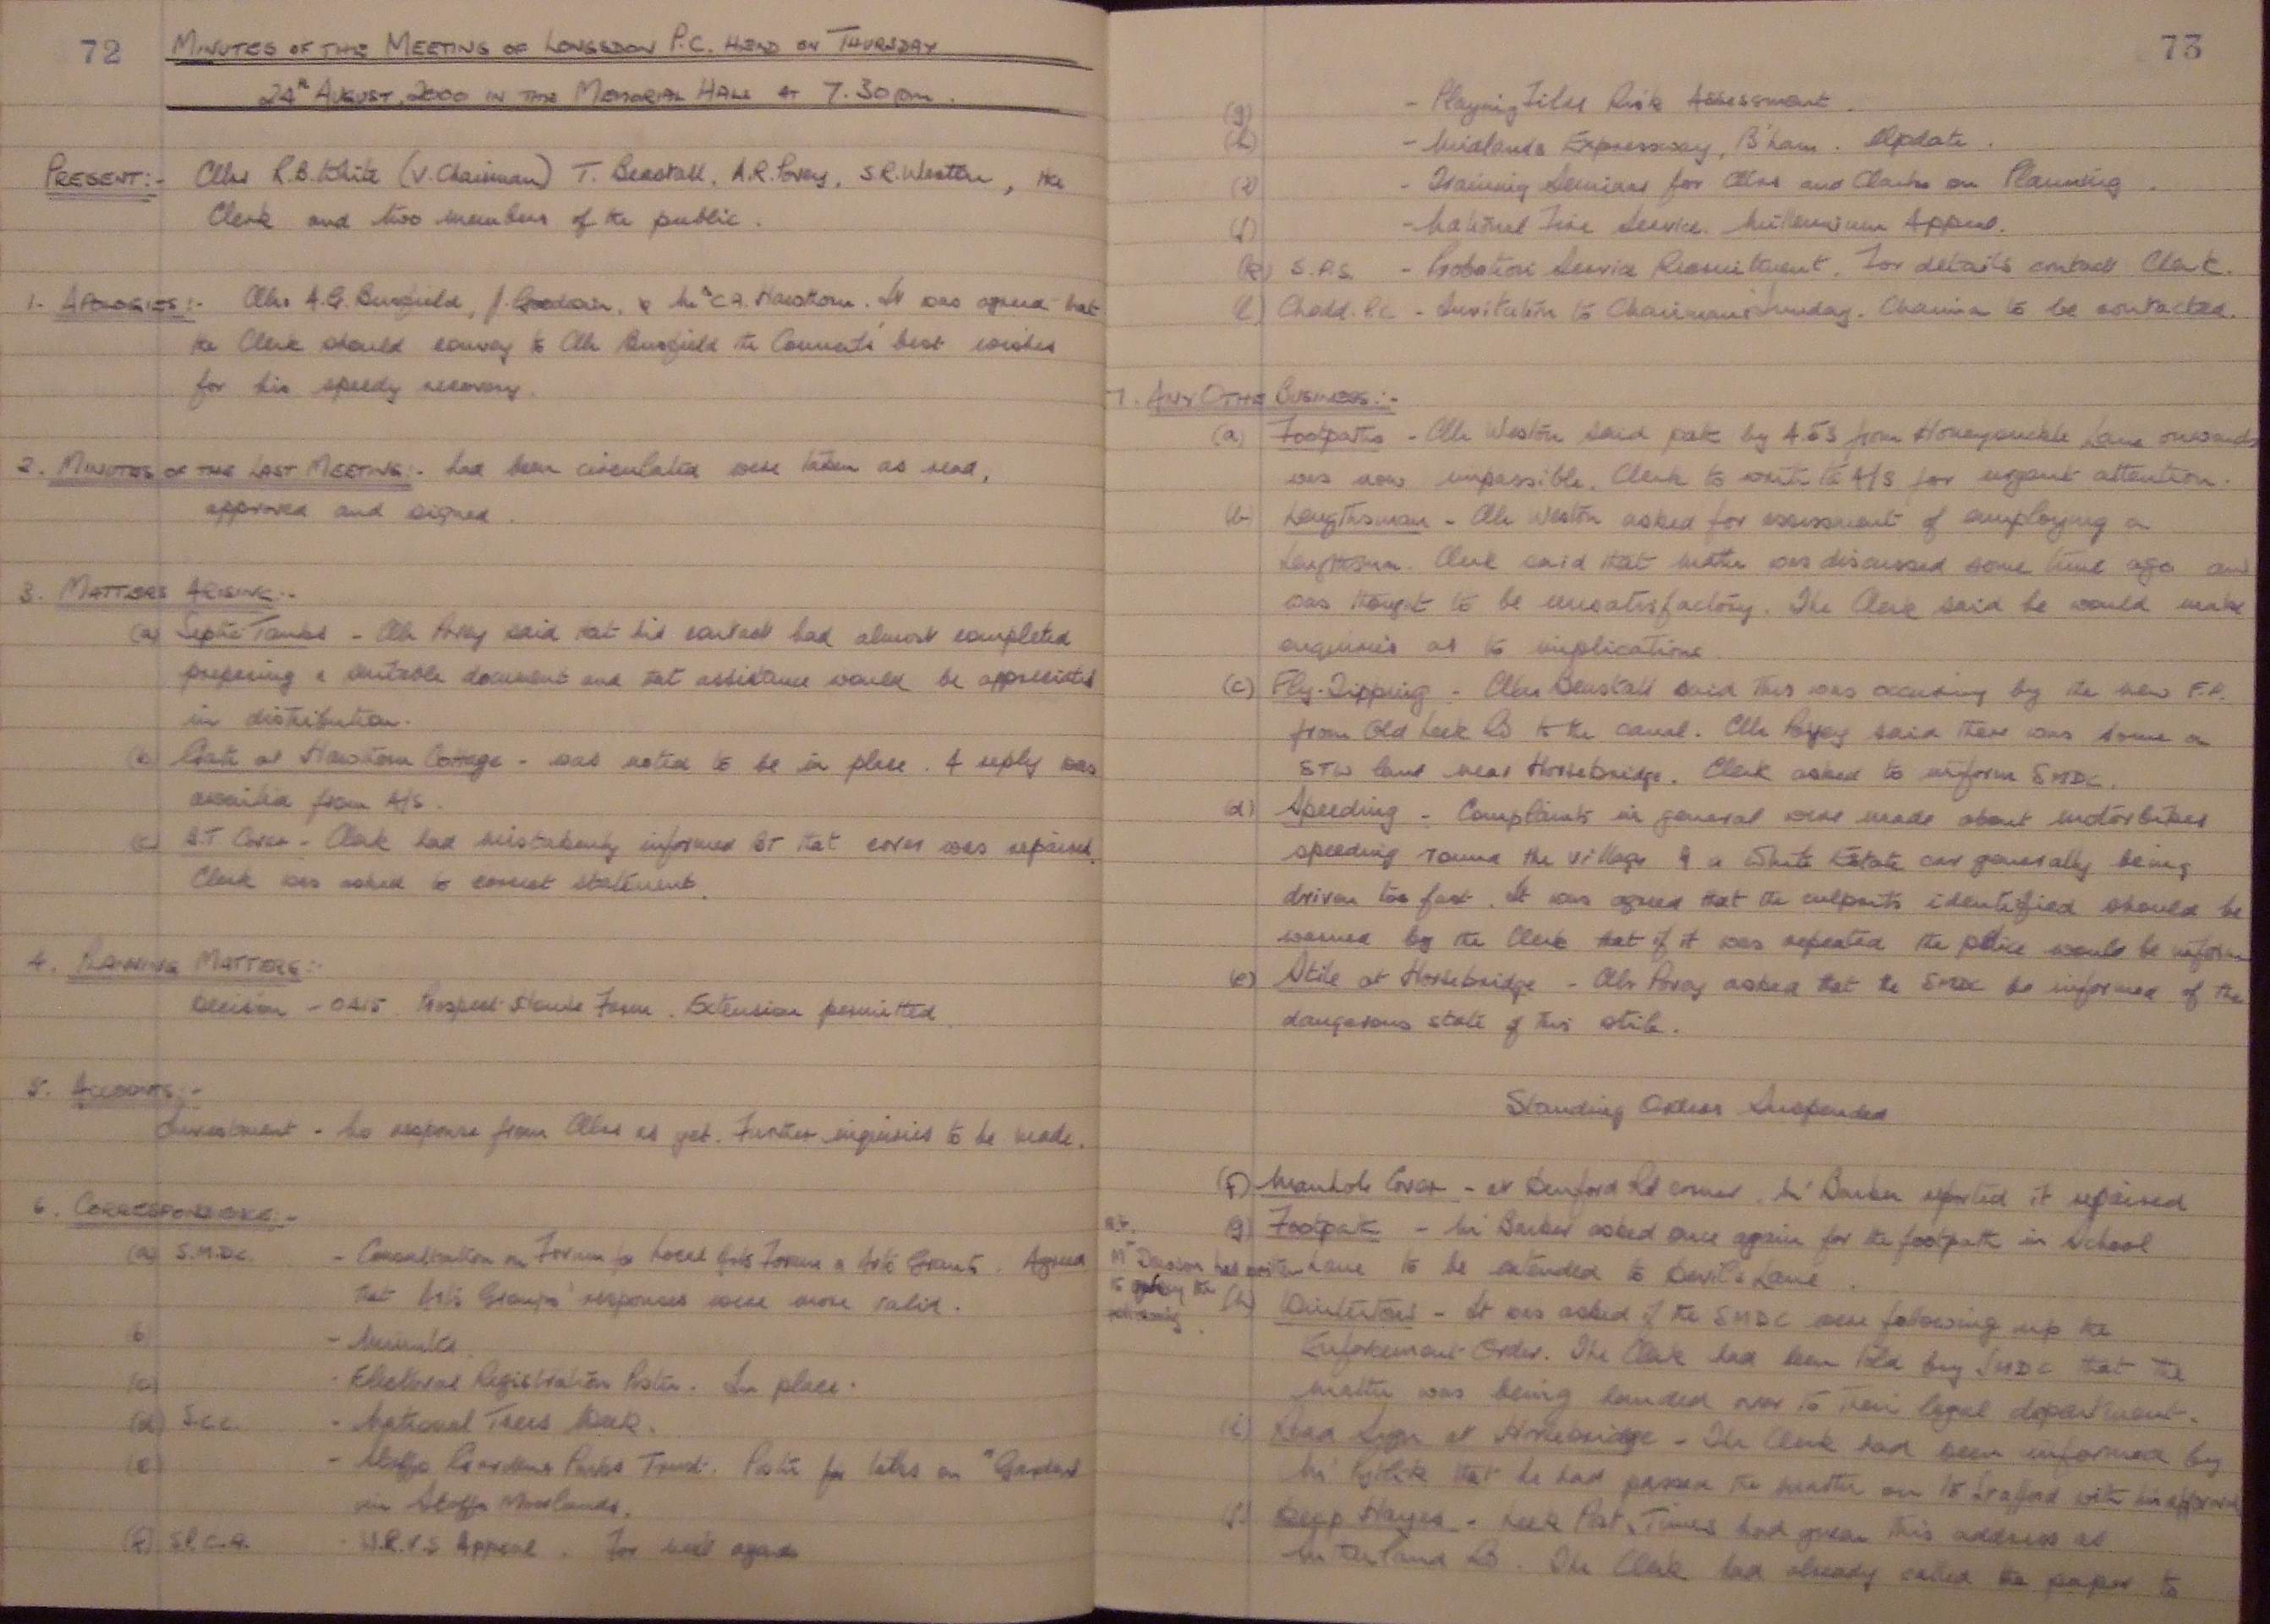 72
MINUTES OF THE MEETING OF LONGSDON P.C. HELD ON THURSDAY
24th AUGUST, 2000 IN THE MEMORIAL HALL AT 7.30pm.
PRESENT:- Cllrs R.B. White (V. Chairman) T. Beastall, A.R. Povey, S.R. Weston, the
Clerk and two members of the public.
1. APOLOGIES:- Cllrs A.G. Burgfield, J. Goodwin, & Mrs C.A. Hawthorn. It was agreed that
the Clerk should convey to Cllr Burgfield the Council's best wishes
for his speedy recovery.
2. MINUTES OF THE LAST MEETING:- had been circulated were taken as read,
approved and signed.
3. MATTERS ARISING:-
(a) Septic Tanks - Cllr Povey said that his contact had almost completed
preparing a suitable document and that assistance would be appreciated
in distribution.
(b) Gate at Hawthorn Cottage - was noted to be in place. A reply was
awaited from A/S.
(c) B.T Cover - Clerk had mistakenly informed BT that cover was repaired.
Clerk was asked to correct statement.
4. PLANNING MATTERS:-
Decision - 0415 Prospect House Farm. Extension permitted.
5. ACCOUNTS:-
Investment - No response from Cllrs as yet. Further inquiries to be made.
6. CORRESPONDENCE:-
(a) S.M.D.C. - Consultation on Forum for Local Arts Forum & Arts Grants. Agreed
that Arts Groups' responses were more valid.
(b) - Minutes.
(c) - Electoral Registration Poster. In place.
(d) S.C.C. - National Trees Week.
(e) - Staffs Gardens Parks Trust. Poster for talks on "Gardens
in Staffs Moorlands.
(f) S.P.C.A. - W.R.V.S Appeal. For next agenda
73
(g) - Playing Files Risk Assessment.
(h) - Midlands Expressway, B'ham. Update.
(i) - Training Seminar for Cllrs and Clerks on Planning.
(j) - National Fire Service. Millennium Appeal.
(k) S.P.S. - Probation Service Recruitment. For details contact Clerk.
(l) Chedd. P.C. - Invitation to Chairman's Sunday. Chairman to be contacted.
7. ANY OTHER BUSINESS:-
(a) Footpaths - Cllr Weston said path by A.53 from Honeysuckle Lane onwards
was now impassible. Clerk to write to A/S for urgent attention.
(b) Lengthsman - Cllr Weston asked for assessment of employing a
Lengthsman. Clerk said that matter was discussed some time ago and
was thought to be unsatisfactory. The Clerk said he would make
enquiries as to implications.
(c) Fly-Tipping - Cllrs Beastall said this was occurring by the new F.P.
from Old Leek Rd to the canal. Cllr Povey said there was some on
STW land near Horsebridge. Clerk asked to inform SMDC.
(d) Speeding - Complaints in general were made about motorbikes
speeding round the village & a White Estate car generally being
driven too fast. It was agreed that the culprits identified should be
warned by the Clerk that if it was repeated the police would be inform
(e) Stile at Horsebridge - Cllr Povey asked that the SMDC be informed of the
dangerous state of this stile.
Standing Orders Suspended
(f) Manhole Cover - at Denford Rd corner. Mr Barker reported it repaired
(g) Footpath - Mr Barker asked once again for the footpath in School
Lane to be extended to Devils Lane.
Mr has written
to the
(h) Wintertons - It was asked if the SMDC were following up the
Enforcement Order. The Clerk had been told by SMDC that the
matter was being handed over to their legal department.
(i) Road Sign at Horsebridge - The Clerk had been informed by
Mr that he had passed the matter on to Stafford with his approval
(j) Deep Hayes - Leek Post & Times had given this address as
Sutherland Rd. The Clerk had already called the paper to